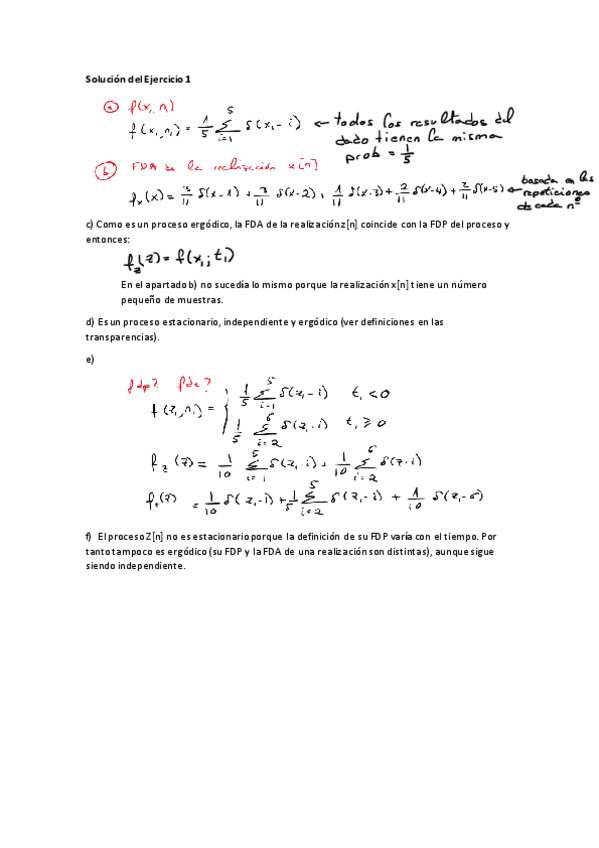 Solución del Ejercicio 1
a) f(x, n)
f(x₁, n₁) = 1/5 5∑i=1 δ(x₁ - i) ← todos los resultados del dado tienen la misma prob = 1/5
b) FDA de la realización x[n]
fₓ(x) = 3/11 δ(x-1) + 3/11 δ(x-2) + 1/11 δ(x-3) + 2/11 δ(x-4) + 2/11 δ(x-5) ← basada en las repeticiones de cada nº
c) Como es un proceso ergódico, la FDA de la realización z[n] coincide con la FDP del proceso y
entonces:
f_z(z) = f(x₁; t₁)
En el apartado b) no sucedía lo mismo porque la realización x[n] tiene un número
pequeño de muestras.
d) Es un proceso estacionario, independiente y ergódico (ver definiciones en las
transparencias).
e)
fdp? fda?
f(z₁, n₁) = { 1/5 5∑i=1 δ(z₁ - i) t₁ < 0
1/5 6∑i=2 δ(z₁ - i) t₁ ≥ 0
f_z(z) = 1/10 5∑i=1 δ(z₁ - i) + 1/10 6∑i=2 δ(z - i)
f_z(z) = 1/10 δ(z₁ - i) + 1/5 5∑i=2 δ(z₁ - i) + 1/10 δ(z₁ - 6)
f) El proceso Z[n] no es estacionario porque la definición de su FDP varía con el tiempo. Por
tanto tampoco es ergódico (su FDP y la FDA de una realización son distintas), aunque sigue
siendo independiente.